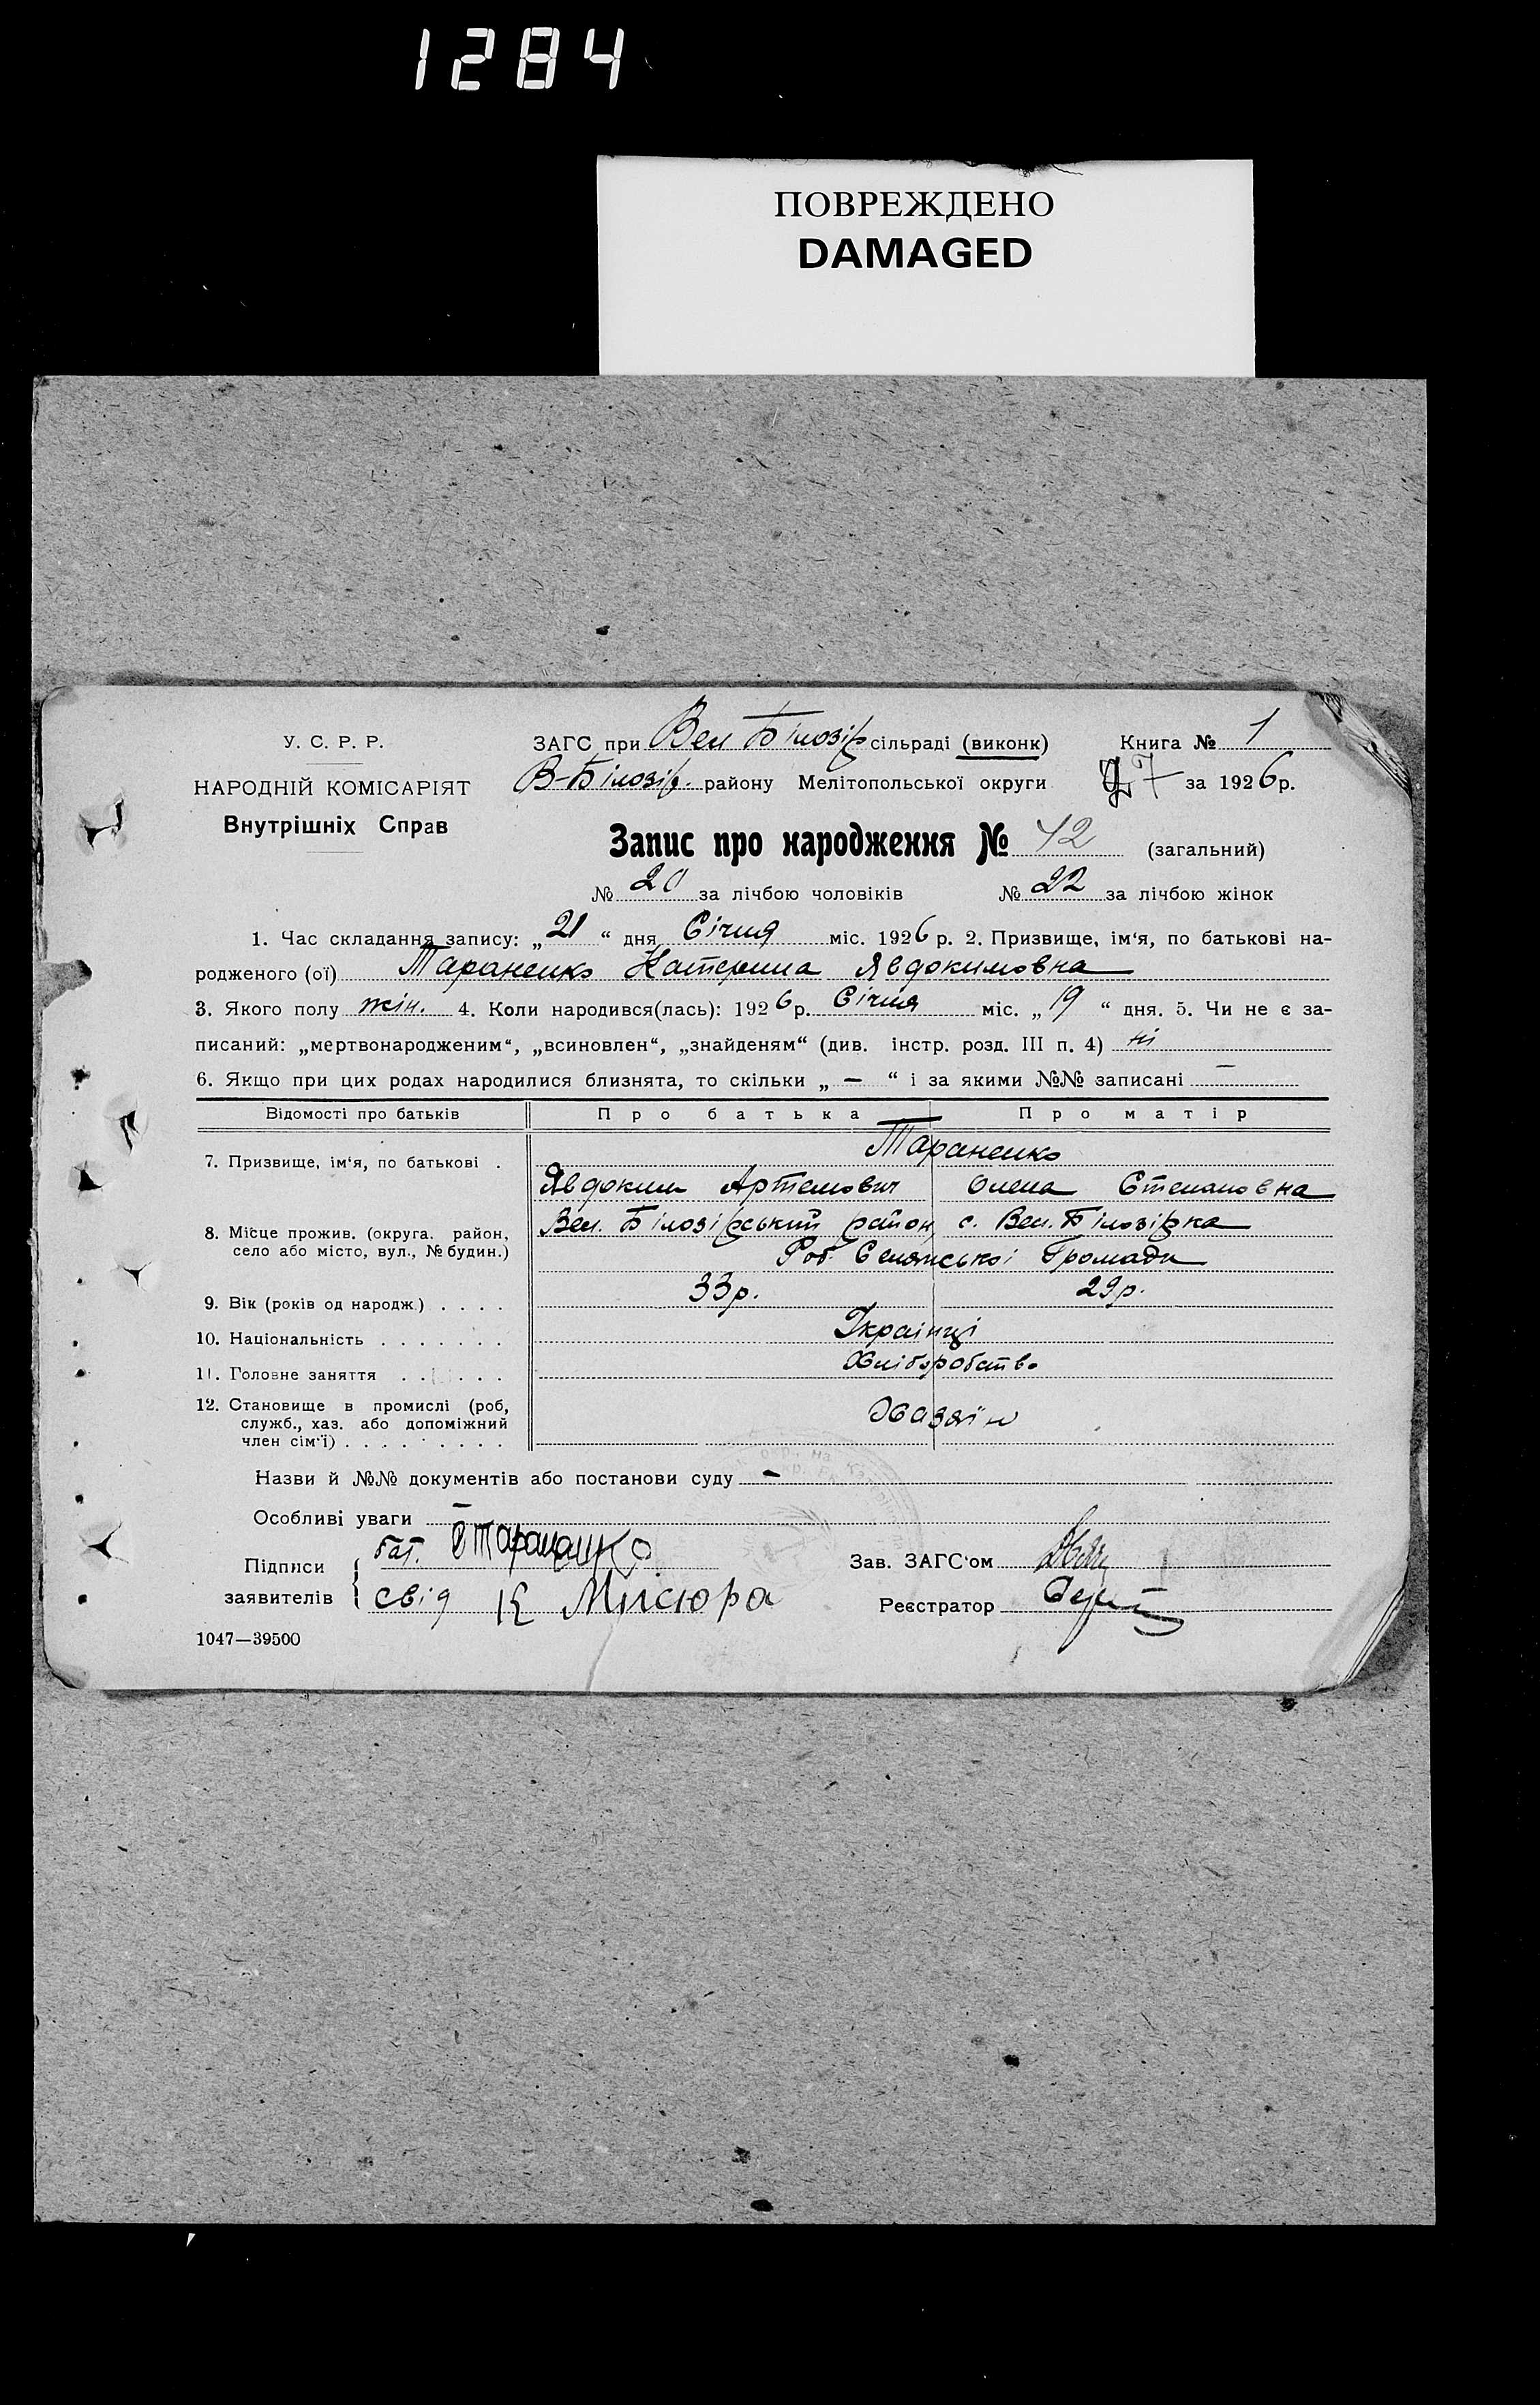 1284
ПОВРЕЖДЕНО
DAMAGED
У. С. Р. Р.
НАРОДНІЙ КОМІСАРІЯТ
Внутрішніх Справ
ЗАГС при Вел Білозір сільраді (виконк) Книга № 1
В-Білозір. району Мелітопольської округи за 1926 р.
Запис про народження № 42 (загальний)
№ 20 за лічбою чоловіків № 22 за лічбою жінок
1. Час складання запису: „21“ дня Січня міс. 1926 р. 2. Призвище, ім‘я, по батькові на-
родженого (ої) Тараненко Катерина Явдокимовна
3. Якого полу жін. 4. Коли народився(лась): 1926 р. Січня міс. „19“ дня. 5. Чи не є за-
писаний: „мертвонародженим“, „всиновлен“, „знайденям“ (див. інстр. розд. III п. 4) ні
6. Якщо при цих родах народилися близнята, то скільки „ — “ і за якими №№ записані —
Відомості про батьків Про батька Про матір
7. Призвище, ім‘я, по батькові . Тараненко
Явдоким Артемович Олена Степановна
8. Місце прожив. (округа. район, село або місто, вул., № будин.) Вел. Білозірський район с. Вел. Білозірка
Роб. Селянської Громади
9. Вік (років од народж.) . . . . 33 р. 29 р.
10. Національність . . . . . . . Українці
11. Головне заняття . . . . . . Хліборобство
12. Становище в промислі (роб, служб., хаз. або допоміжний член сім‘ї) . . . . . . . . . Хазяїн
Назви й №№ документів або постанови суду —
Особливі уваги —
Підписи
заявителів
бат. Тараненко
свід К Мисюра
Зав. ЗАГС‘ом
Реєстратор
1047—39500